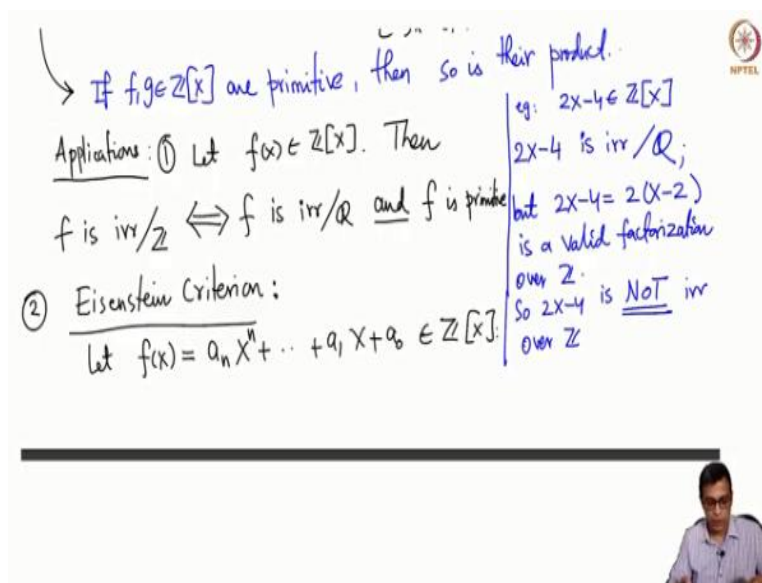 → If f,g∈ℤ[x] are primitive, then so is their product.
Applications: ① Let f(x) ∈ ℤ[x]. Then
f is irr/ℤ ⟺ f is irr/ℚ and f is primitive
② Eisenstein Criterion:
Let f(x) = aₙxⁿ+ ·· +a₁x+a₀ ∈ ℤ[x].
eg: 2x-4 ∈ ℤ[x]
2x-4 is irr/ℚ;
but 2x-4 = 2(x-2)
is a valid factorization
over ℤ.
So 2x-4 is NOT irr
over ℤ
NPTEL